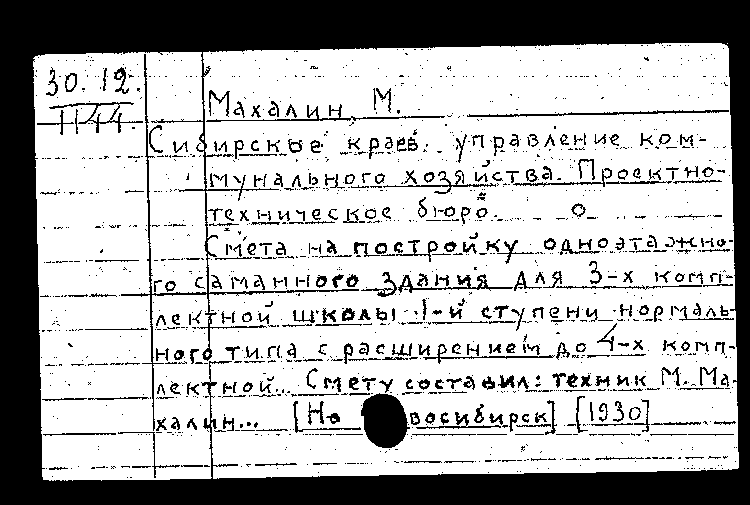 30.12.
1144.
Махалин, М.
Сибирское краев. управление ком-
мунального хозяйства. Проектно-
техническое бюро.
Смета на постройку одноэтажно-
го саманного здания для 3-х комп-
лектной школы 1-й ступени нормаль-
ного типа с расширением до 4-х комп-
лектной... Смету составил: техник М. Ма-
халин... [Но восибирск] [1930]